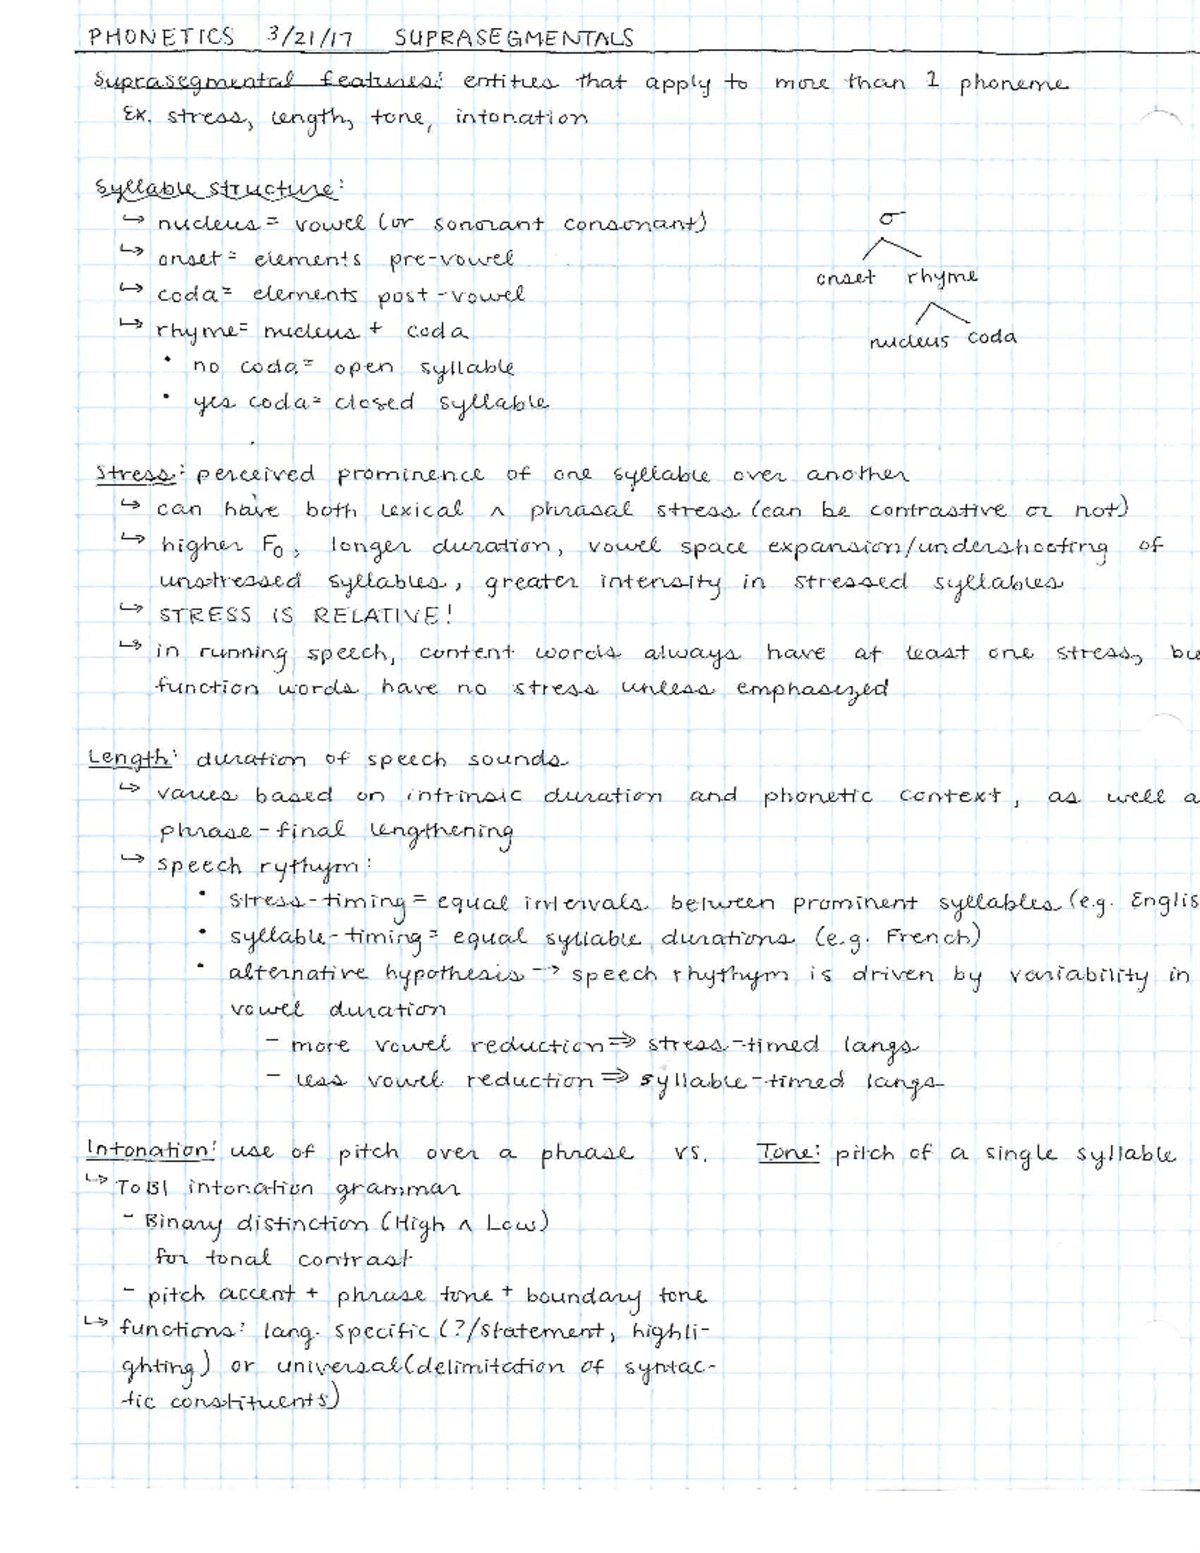 PHONETICS 3/21/17 SUPRASEGMENTALS
Suprasegmental features: entities that apply to more than 1 phoneme
Ex. stress, length, tone, intonation
Syllable structure:
↳ nucleus = vowel (or sonorant consonant)
↳ onset = elements pre-vowel
↳ coda = elements post-vowel
↳ rhyme = nucleus + coda
• no coda = open syllable
• yes coda = closed syllable
σ
onset rhyme
nucleus coda
Stress: perceived prominence of one syllable over another
↳ can have both lexical ∧ phrasal stress (can be contrastive or not)
↳ higher F₀, longer duration, vowel space expansion/undershooting of
unstressed syllables, greater intensity in stressed syllables
↳ STRESS IS RELATIVE!
↳ in running speech, content words always have at least one stress, bu
function words have no stress unless emphasized
Length: duration of speech sounds
↳ varies based on intrinsic duration and phonetic context, as well a
phrase-final lengthening
↳ speech rythym:
• stress-timing = equal intervals between prominent syllables (e.g. Englis
• syllable-timing = equal syllable durations (e.g. French)
• alternative hypothesis → speech rhythym is driven by variability in
vowel duration
- more vowel reduction ⇒ stress-timed langs
- less vowel reduction ⇒ syllable-timed langs
Intonation: use of pitch over a phrase vs. Tone: pitch of a single syllable
↳ ToBI intonation grammar
- Binary distinction (High ∧ Low)
for tonal contrast
- pitch accent + phrase tone + boundary tone
↳ functions: lang. specific (?/statement, highli-
ghting) or universal (delimitation of syntac-
tic constituents)